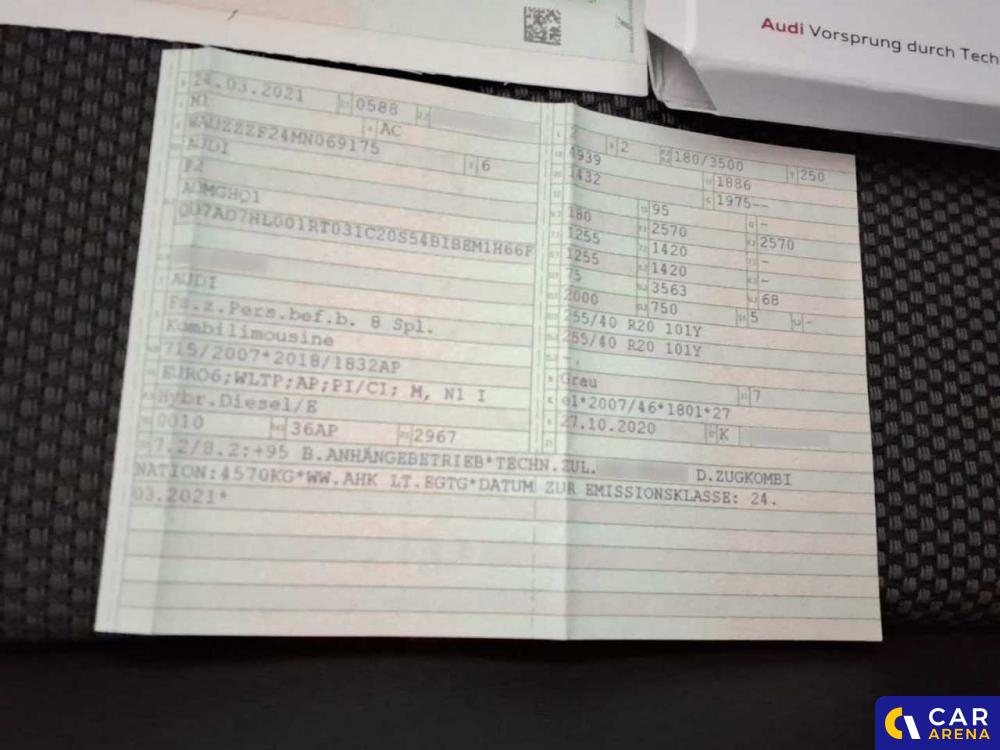 Audi Vorsprung durch Tech
24.03.2021 0588
M1 AC
WAUZZZF24MN069175
AUDI 6
F2
AUMGHQ1
QU7AD7HL001RT031C20S54BIBEM1H66F
AUDI
Fz.z.Pers.bef.b. 8 Spl.
Kombilimousine
715/2007*2018/1832AP
EURO6;WLTP;AP;PI/CI; M, N1 I
Hybr.Diesel/E
0010 36AP 2967
2 2 180/3500 250
4939 1886
1432 1975--
180 95 -
1255 2570 2570
1255 1420 -
75 1420 -
2000 3563 68
750 5 -
255/40 R20 101Y
255/40 R20 101Y
-.
Grau 7
e1*2007/46*1801*27
27.10.2020 K
7.2/8.2:+95 B.ANHÄNGEBETRIEB*TECHN.ZUL. D.ZUGKOMBI
NATION:4570KG*WW.AHK LT.EGTG*DATUM ZUR EMISSIONSKLASSE: 24.
03.2021*
CAR
ARENA